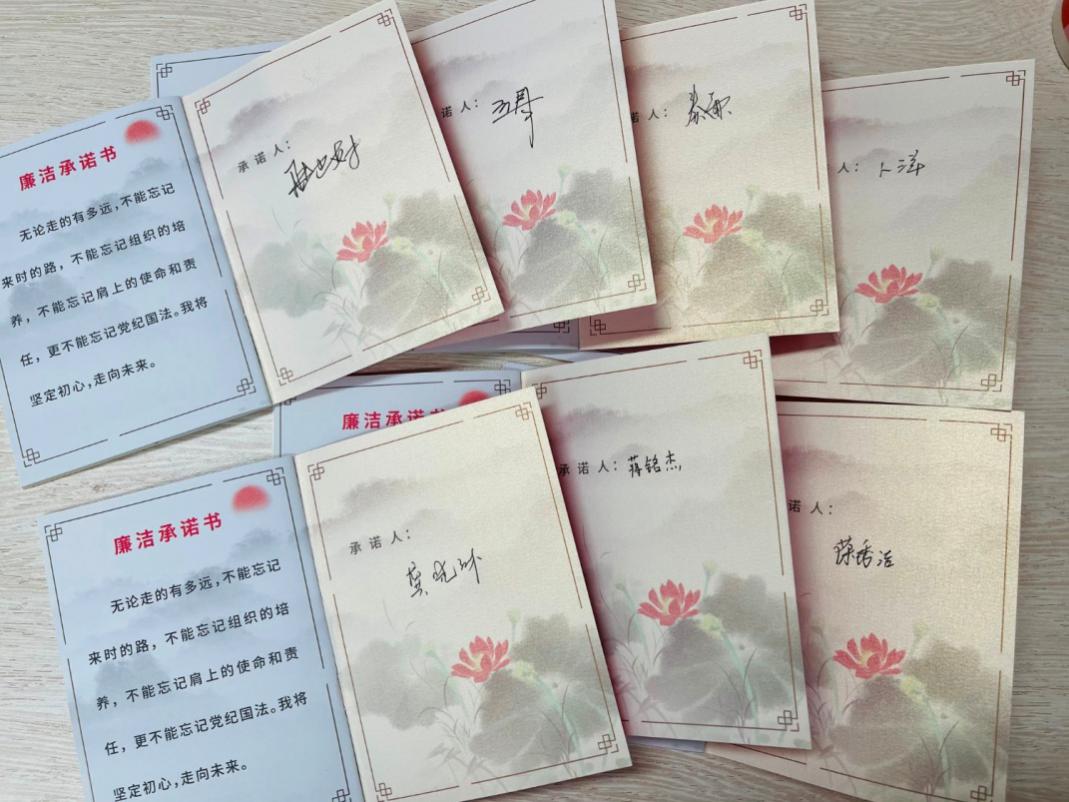 廉洁承诺书
无论走的有多远，不能忘记
来时的路，不能忘记组织的培
养，不能忘记肩上的使命和责
任，更不能忘记党纪国法。我将
坚定初心，走向未来。
承诺人：
诺人：
诺人：秦雨
人：卜洋
廉洁承诺书
承诺人：蒋铭杰
诺人：
廉洁承诺书
无论走的有多远，不能忘记
来时的路，不能忘记组织的培
养，不能忘记肩上的使命和责
任，更不能忘记党纪国法。我将
坚定初心，走向未来。
承诺人：